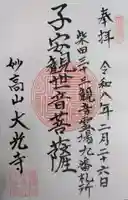 奉拝
令和八年二月二十六日
柴田三十三観音霊場九番札所
子安観世音菩薩
妙高山大光寺